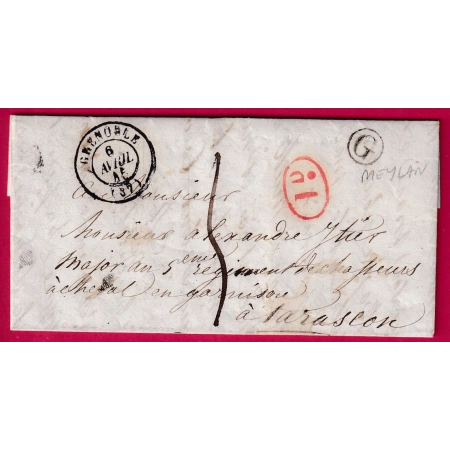 GRENOBLE
6
AVRIL
45
(37)
1D
G
MEYLAN
5
à Monsieur
Monsieur alexandre Itier
Major au 5eme régiment de chasseurs
à cheval en garnison
à tarascon